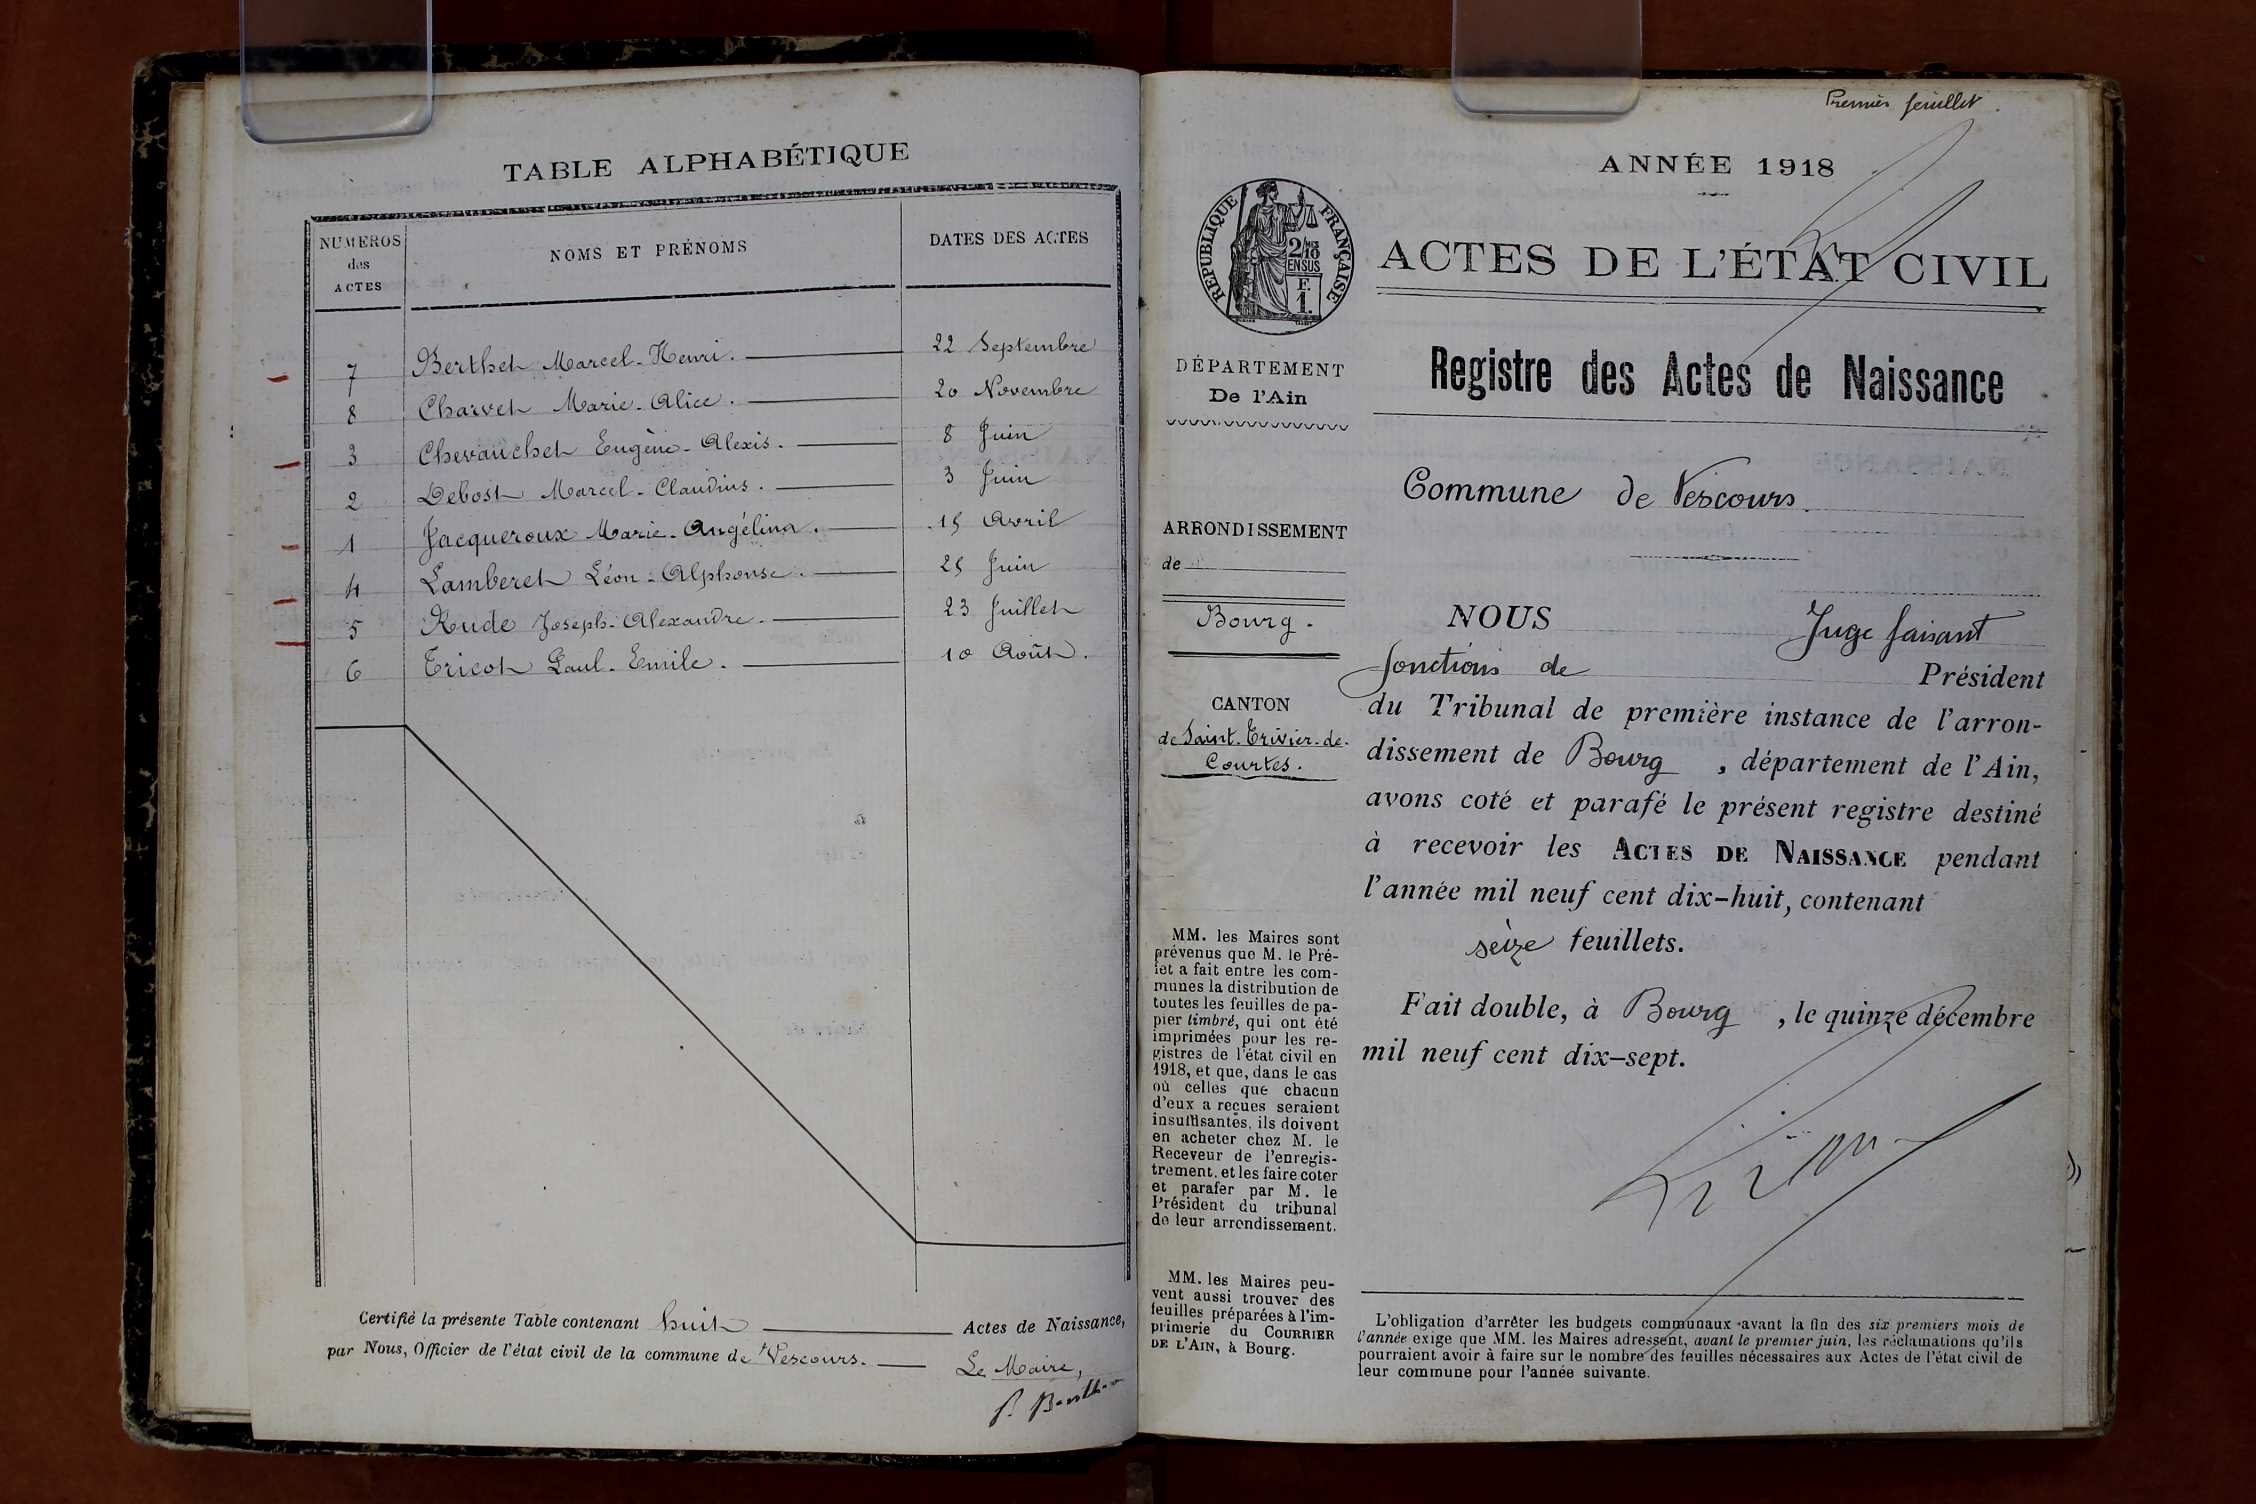 TABLE ALPHABÉTIQUE
NUMÉROS des ACTES NOMS ET PRÉNOMS DATES DES ACTES
7 Berthet Marcel-Henri. 22 Septembre
8 Charvet Marie-Alice. 20 Novembre
3 Chevauchet Eugène-Alexis. 8 Juin
2 Debost Marcel-Claudius. 3 Juin
1 Jacqueroux Marie-Angélina. 15 Avril
4 Lamberet Léon-Alphonse. 25 Juin
5 Rude Joseph-Alexandre. 23 Juillet
6 Tricot Paul-Emile. 10 Août.
Certifié la présente Table contenant huit Actes de Naissance,
par Nous, Officier de l'état civil de la commune de Vescours.
Le Maire,
Premier feuillet.
ANNÉE 1918
RÉPUBLIQUE FRANÇAISE
2/10
EN SUS
F.
1.
ACTES DE L'ÉTAT CIVIL
Registre des Actes de Naissance
DÉPARTEMENT
De l'Ain
ARRONDISSEMENT
de
Bourg.
CANTON
de Saint-Trivier-de-
Courtes.
MM. les Maires sont
prévenus que M. le Pré-
fet a fait entre les com-
munes la distribution de
toutes les feuilles de pa-
pier timbré, qui ont été
imprimées pour les re-
gistres de l'état civil en
1918, et que, dans le cas
où celles que chacun
d'eux a reçues seraient
insuffisantes, ils doivent
en acheter chez M. le
Receveur de l'enregis-
trement, et les faire coter
et parafer par M. le
Président du tribunal
de leur arrondissement.
MM. les Maires peu-
vent aussi trouver des
feuilles préparées à l'im-
primerie du COURRIER
DE L'AIN, à Bourg.
Commune de Vescours.
NOUS Juge faisant
fonctions de Président
du Tribunal de première instance de l'arron-
dissement de Bourg, département de l'Ain,
avons coté et parafé le présent registre destiné
à recevoir les ACTES DE NAISSANCE pendant
l'année mil neuf cent dix-huit, contenant
seize feuillets.
Fait double, à Bourg, le quinze décembre
mil neuf cent dix-sept.
L'obligation d'arrêter les budgets communaux avant la fin des six premiers mois de
l'année exige que MM. les Maires adressent, avant le premier juin, les réclamations qu'ils
pourraient avoir à faire sur le nombre des feuilles nécessaires aux Actes de l'état civil de
leur commune pour l'année suivante.